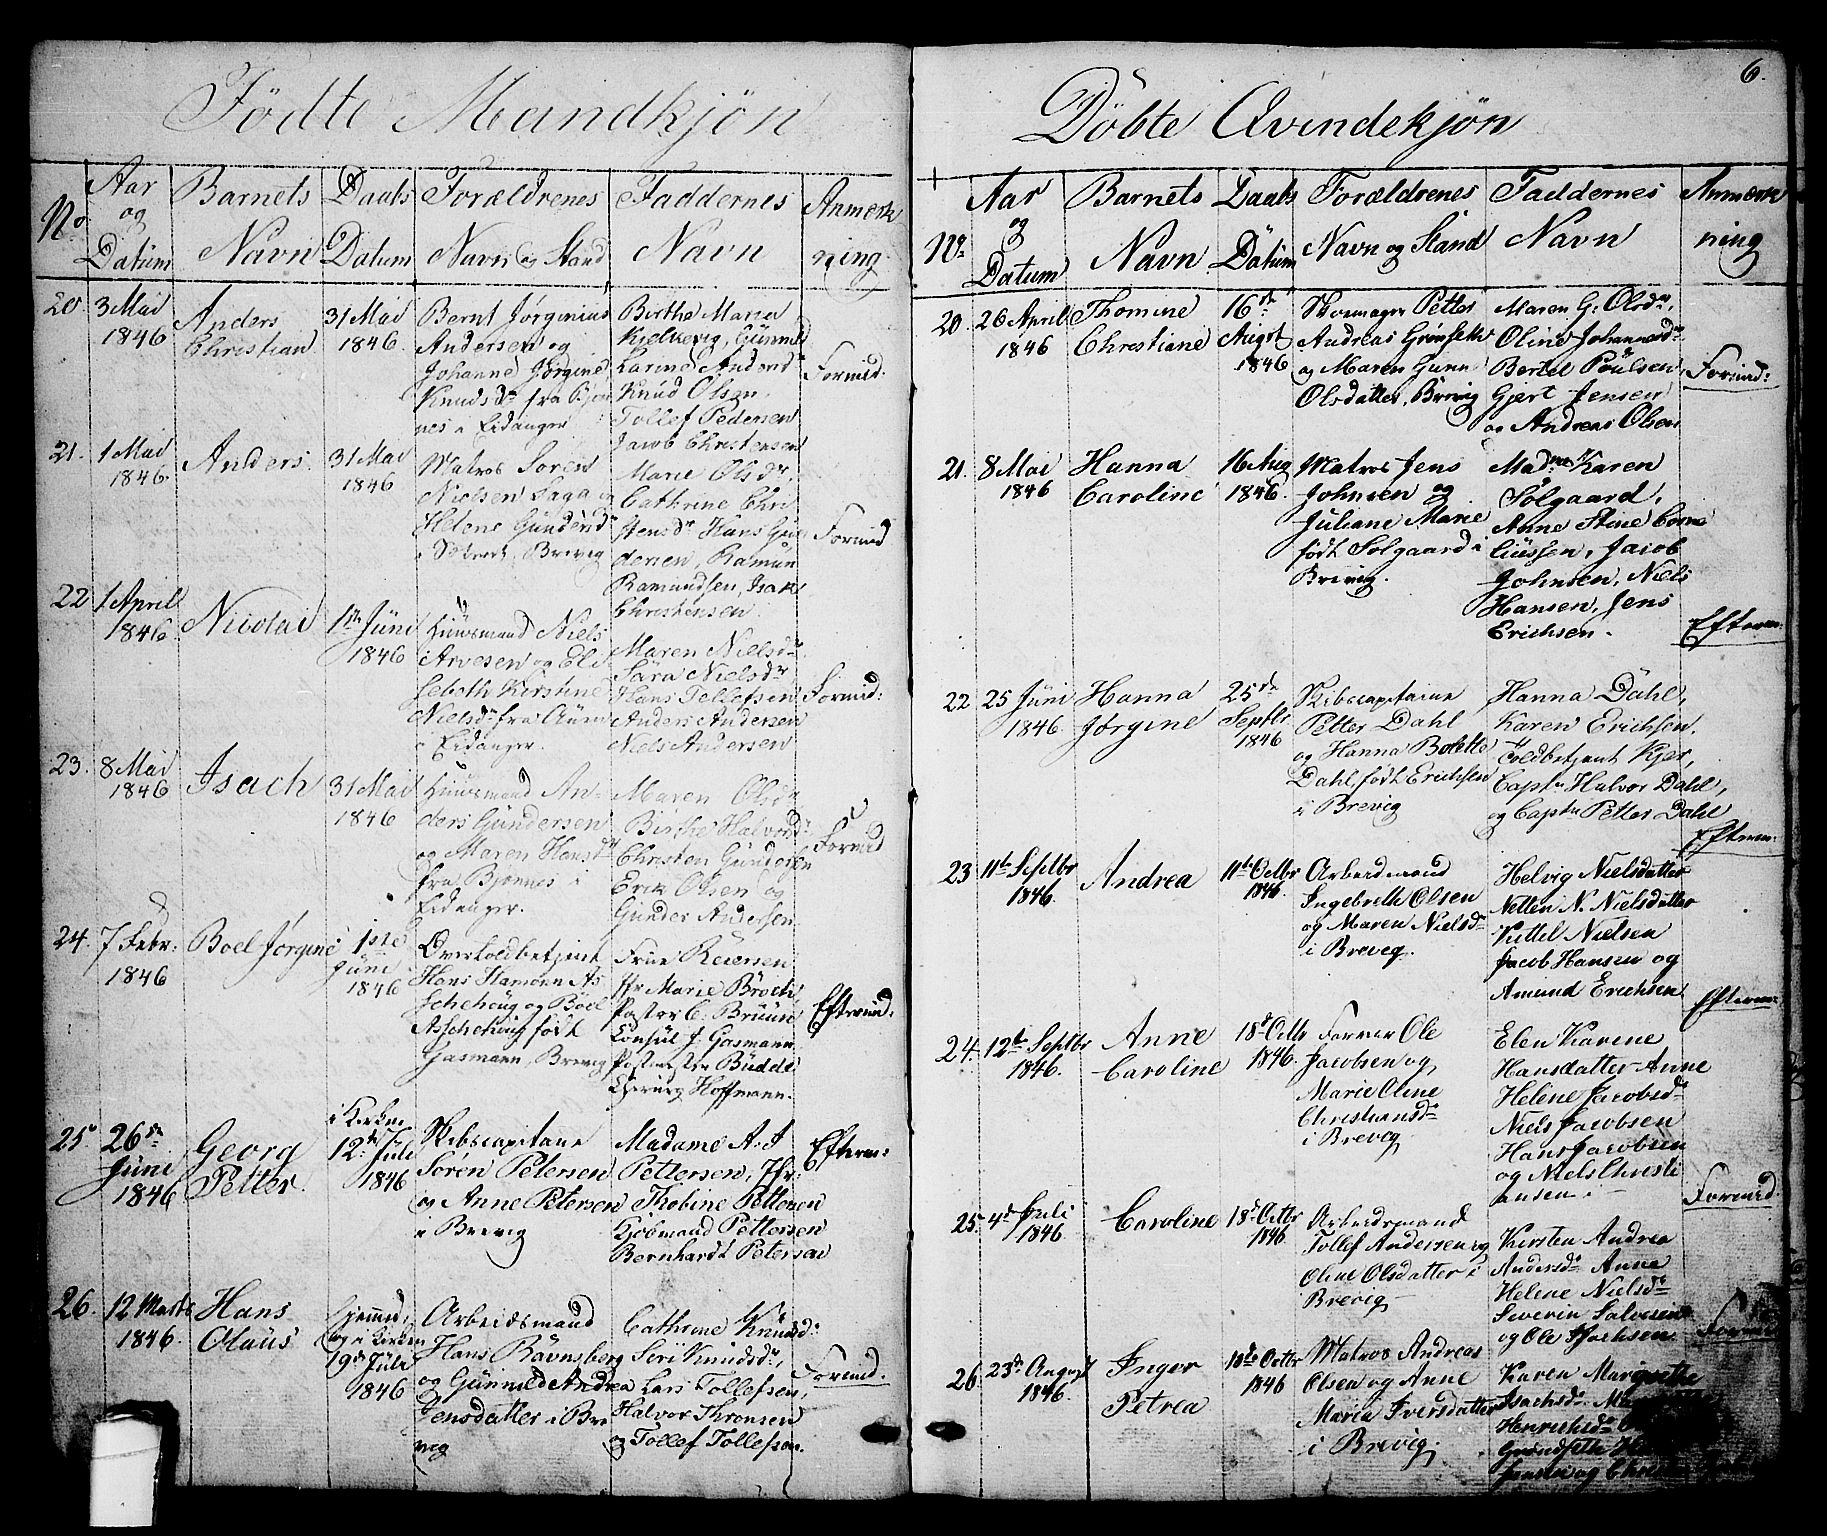 Fødte Mandkjøn
No
Aar og Datum
Barnets Navn
Daabs Datum
Forældrenes Navn og Stand
Faddernes Navn
Anmerkning
20
3 Mai
1846
Anders
Christian
31 Mai
1846
Bernt Jørginius
Andersen og
Johanne Jørgine
Knudsdr fra Bjøn
nes i Eidanger
Birthe Maria
Kjelkevig, Gunnild
Karine Andersd
Knud Olsen
Tollef Pedersen
Jacob Christensen
Formid.
21.
1 Mai
1846.
Anders.
31 Mai
1846
Matros Søren
Nielsen Saga og
Helene Gundersdr
Brevig
Marie Olsdr
Cathrine Chri
stensdr Hans Gun
dersen, Ramun
Ramundsen, Isak
Christensen
Formid
22
1 April
1846
Nicolai
1ste Juni
1846
Huusmand Niels
Arvesen og Eli
sebeth Kirstine
Nielsdr fra
i Eidanger.
Maren Nielsdr
Sara Nielsdr
Hans Tellefsen
Anders Andersen
Niels Andersen
Formid:
23.
8 Mai
1846
Isach
31 Mai
1846
Huusmand An-
ders Gundersen
og Maren Hansdr
fra Bjønnes i
Eidanger.
Maren Olsdr
Birthe Halvorsdr
Christen Gundersen
Erik Olsen og
Gunder Andersen
Formid
24.
7 Febr:
1846
Boel Jørgine
1ste
Juni
1846
Overtoldbetjent
Hans Hamonn As
schehoug og Boel
Asschehoug født
Gasmann, Brevig
Frue Reiersen
Jfr Marie Broch
Pastor C. Bruun
Consul J. Gasmann
Postmester Budde
Chirurg Hoffmann.
Eftermid.
25
26de
Juni
1846
Georg
Petter.
i Kirken
12te Juli
1846
Skibscapitain
Søren Petersen
og Anne Petersen
i Brevig
Madame A. J
Pettersen, Jfr:
Thobine Pettersen
Kjøbmand Pettersen
Bernhardt Petersen
Efterm:
26.
12 Marts
1846.
Hans
Olaus
Hjemmed.
og i Kirken
19de Juli
1846
Arbeidsmand
Hans Ravnsberg
og Gunnild Andrea
Jensdatter i Bre
vig
Cathrine Knudsd:
Siri Knudsdr,
Lars Tollefsen,
Halvor Thronsen
og Tollef Tollefsen.
Formid.
6.
Døbte Qvindekjøn
No.
Aar og Datum
Barnets Navn
Daabs Datum
Forældrenes Navn og Stand
Faddernes Navn
Anmerkning
20.
26 April
1846
Thomine
Christiane
16de
August
1846
Skoemager Petter
Andreas Grønseth
og Maren Gunn
Olsdatter, Brevig
Maren G: Olsdr,
Oline Johannesdr
Bertel Poulsen,
Gjert Jensen
og Andreas Olsen
Formid:
21.
8 Mai
1846
Hanna
Caroline
16 Aug
1846.
Matros Jens
Johnsen og
Juliane Marie
født Solgaard i
Brevig.
Madme Karen
Solgaard,
Anne Stine Corne
liussen, Jacob
Johnsen, Niels
Hansen, Jens
Erichsen.
Efterm:
22
25 Juni
1846.
Hanna
Jørgine
25de
Septbr
1846
Skibscapitaine
Petter Dahl
og Hanna Bolette
Dahl, født Erichsen
i Brevig
Hanna Dahl,
Karen Erichsen,
Toldbetjent Kjer,
Captn Halvor Dahl,
og Captn Petter Dahl
Efterm:
23
11te Septbr
1846.
Andrea
11te Octbr
1846.
Arbeidsmand
Ingebreth Olsen
og Maren Nielsdr
i Brevig.
Helvig Nielsdatter
Netten N. Nielsdatter
Kittel Nielsen
Jacob Hansen og
Amund Erichsen
Efterm:
24.
12te Septbr
1846.
Anne
Caroline
18de Octbr
1846.
Farver Ole
Jacobsen og
Marie Oline
Christiansdr
i Brevig
Elen Karene
Hansdatter Anne
Helene Jacobsdr
Niels Jacobsen
Hans Jacobsen
og Niels Christi
ansen. –
Formid.
25.
4de Juli
1846
Caroline
18de Octbr
1846
Arbeidsmand
Tollef Andersen og
Oline Olsdatter i
Brevig –
Kirsten Andrea
Andersdr Anne
Helene Nielsdr
Severin Salvesen
og Ole Isachsen
Formid
26.
23de August
1846
Inger
Petrea
18de Octbr
1846
Matros Andreas
Olsen og Anne
Maria Iversdatter
i Brevig
Karen Margrethe
Isachsdr.
Henrichsdr
Grønseth
Jensen og